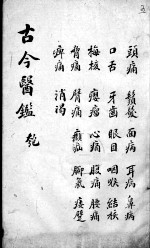 頭痛 鬚髮 面病 耳病 鼻病
口舌 牙齒 眼目 咽喉 結核
梅核 癭瘤 心痛 腹痛 腰痛
脅痛 臂痛 癲疝 脚氣 痿躄
痺痛 消渴
古今醫鑑